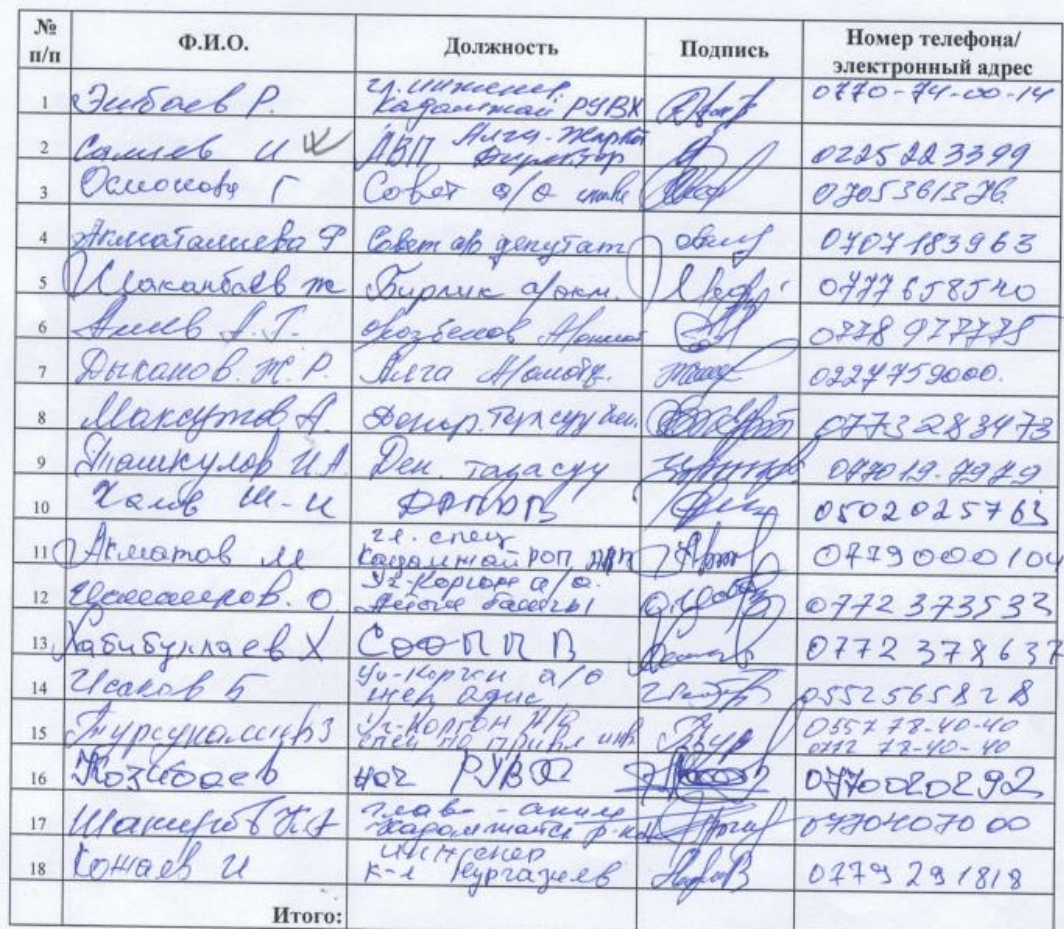 № п/п Ф.И.О. Должность Подпись Номер телефона/ электронный адрес
1 Эшбаев Р. гл. инженер Кадамжай РУВХ 0770-74-00-14
2 Салиев И АВП директор 0225223399
3 Осмонова Г Совет а/о 0705361376
4 Акматалиева Ф Совет а/о депутат 0707183963
5 Шаканбаев Ж Бирлик а/окм. 0777658540
6 Алиев А.Т. Орозбеков А/окмот 0778 977775
7 Дыканов. Ж.Р. Алга А/окмоту. 0227759000.
8 Максутов А. 0773283473
9 Ташкулов И.А. Деп. таза суу 077019-7979
10 Халов Ш-И 0502025763
11 Акматов М гл. спец Кадамжай РОП 0779000104
12 Уч-Коргон а/о. Айыл башчы 0772373532
13 Хабибуллаев Х СООППВ 0772 378637
14 Исаков Б Уч-Коргон а/о жер адис 0552565828
15 Уч-Коргон А/а спец по привл инв 0557 78-40-40
0772 78-40-40
16 Козубаев нач РУВХ 0770020292
17 Шакиров К.А глава - аким Кадамжайск р-на 0770407000
18 Кожаев И инженер к-л Нургазиев 0779 291818
Итого: